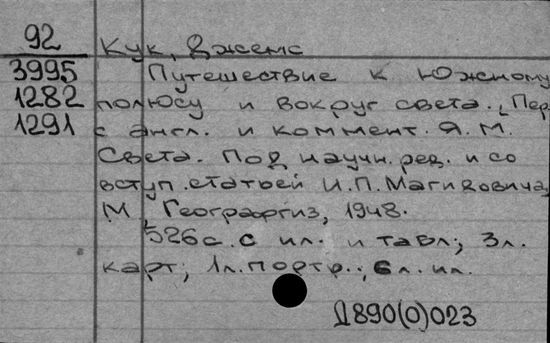 92 Кук, Джемс
3995 Путешествие к Южному
1282 полюсу и вокруг света. [Пер.
1291 с англ. и коммент. Я. М.
Света. Под научн. ред. и со
вступ. статьей И.П. Магидовича]
М., Географгиз, 1948.
526с. с ил. и табл.; 3л.
карт; 1л. портр.; 6л. ил.
Д890(0)023